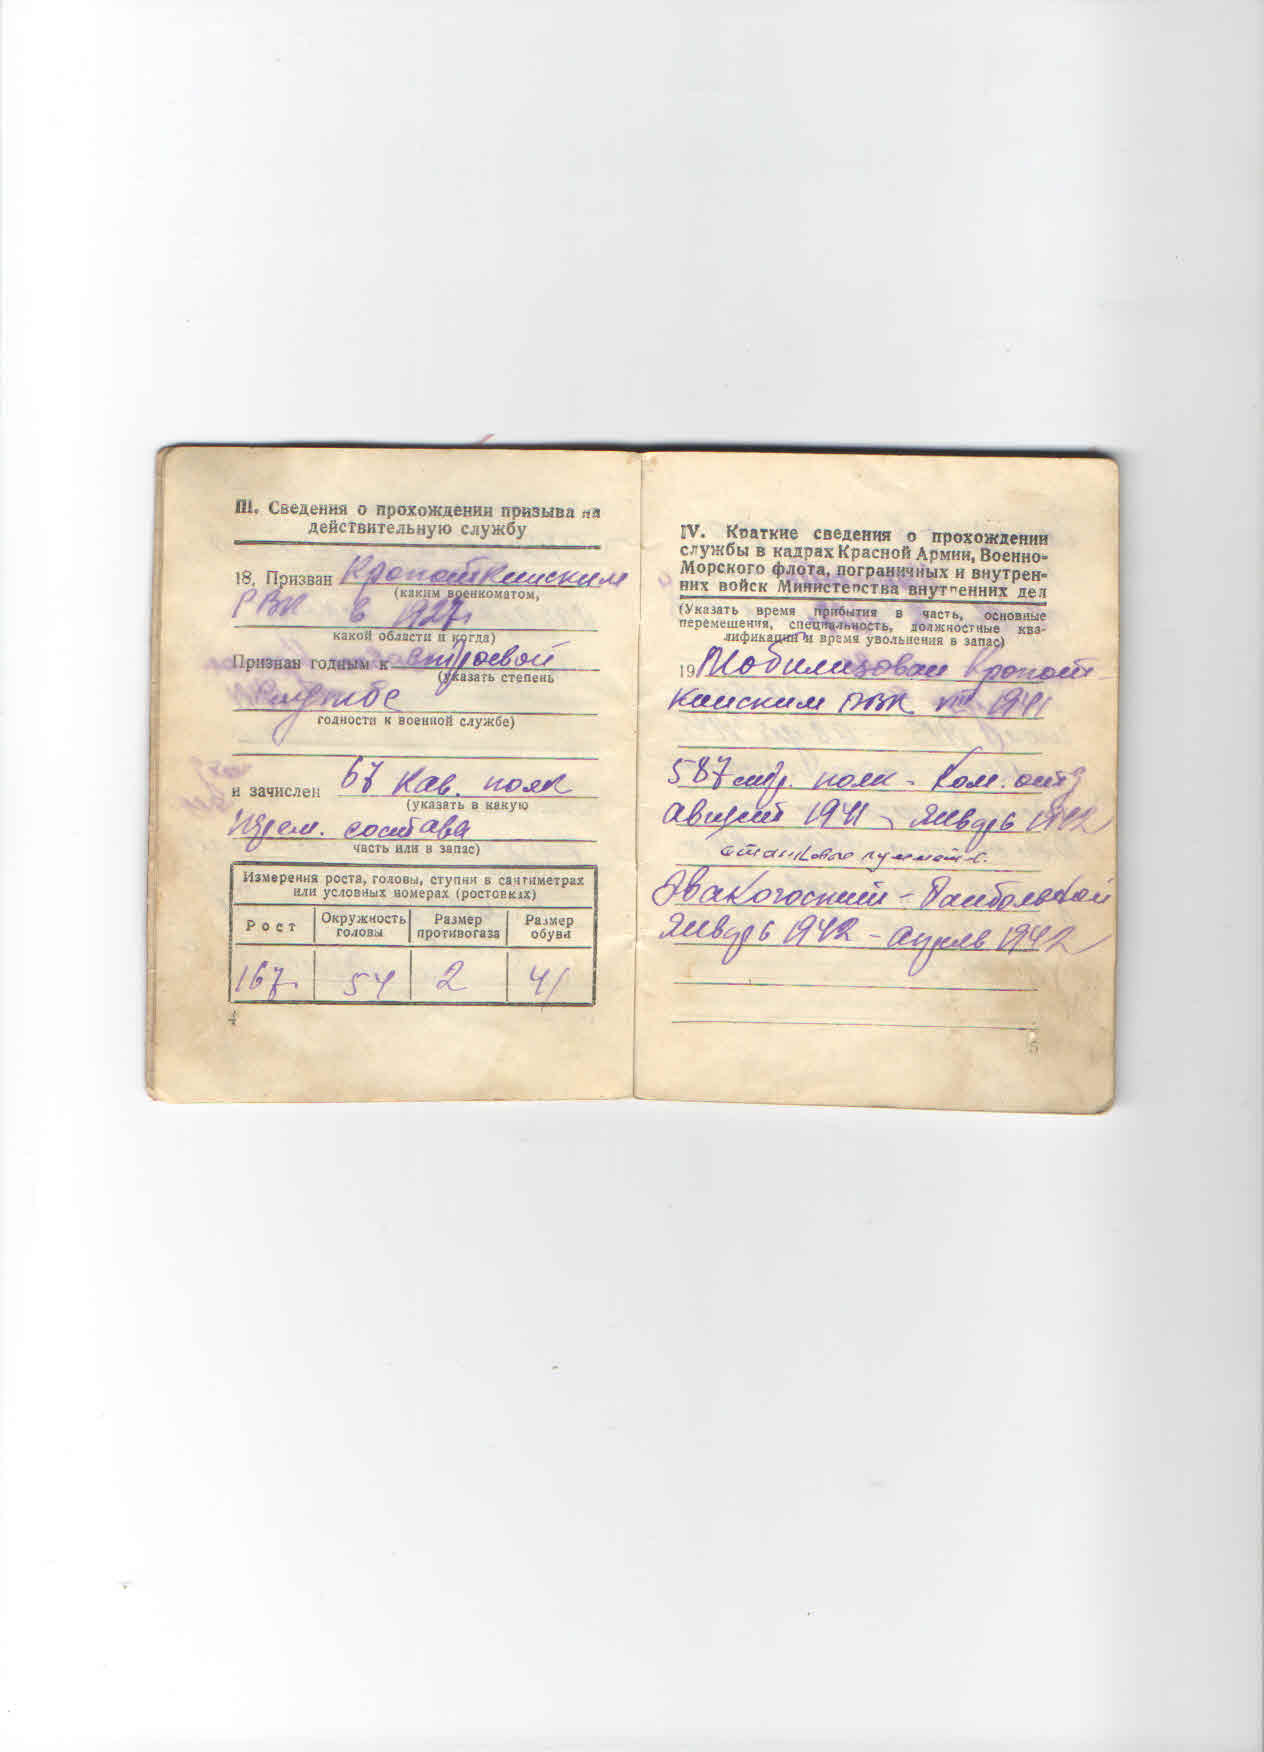 III. Сведения о прохождении призыва на
действительную службу
18. Призван Кропоткинским
(каким военкоматом,
РВК в 1927г.
какой области и когда)
Признан годным к строевой
(указать степень
службе
годности к военной службе)
и зачислен 67 кав. полк
(указать в какую
перем. состава
часть или в запас)
Измерения роста, головы, ступни в сантиметрах
или условных номерах (ростовках)
Рост Окружность головы Размер противогаза Размер обуви
167. 54 2 41
4
IV. Краткие сведения о прохождении
службы в кадрах Красной Армии, Военно-
Морского флота, пограничных и внутрен-
них войск Министерства внутренних дел
(Указать время прибытия в часть, основные
перемещения, специальность, должностные ква-
лификации и время увольнения в запас)
19 Мобилизован Кропот-
кинским РВК VIII 1941
587 стр. полк - Ком. отд
август 1941 - Январь 1942
станкового пулемет
Эвакогоспит -
Январь 1942 - апрель 1942
5